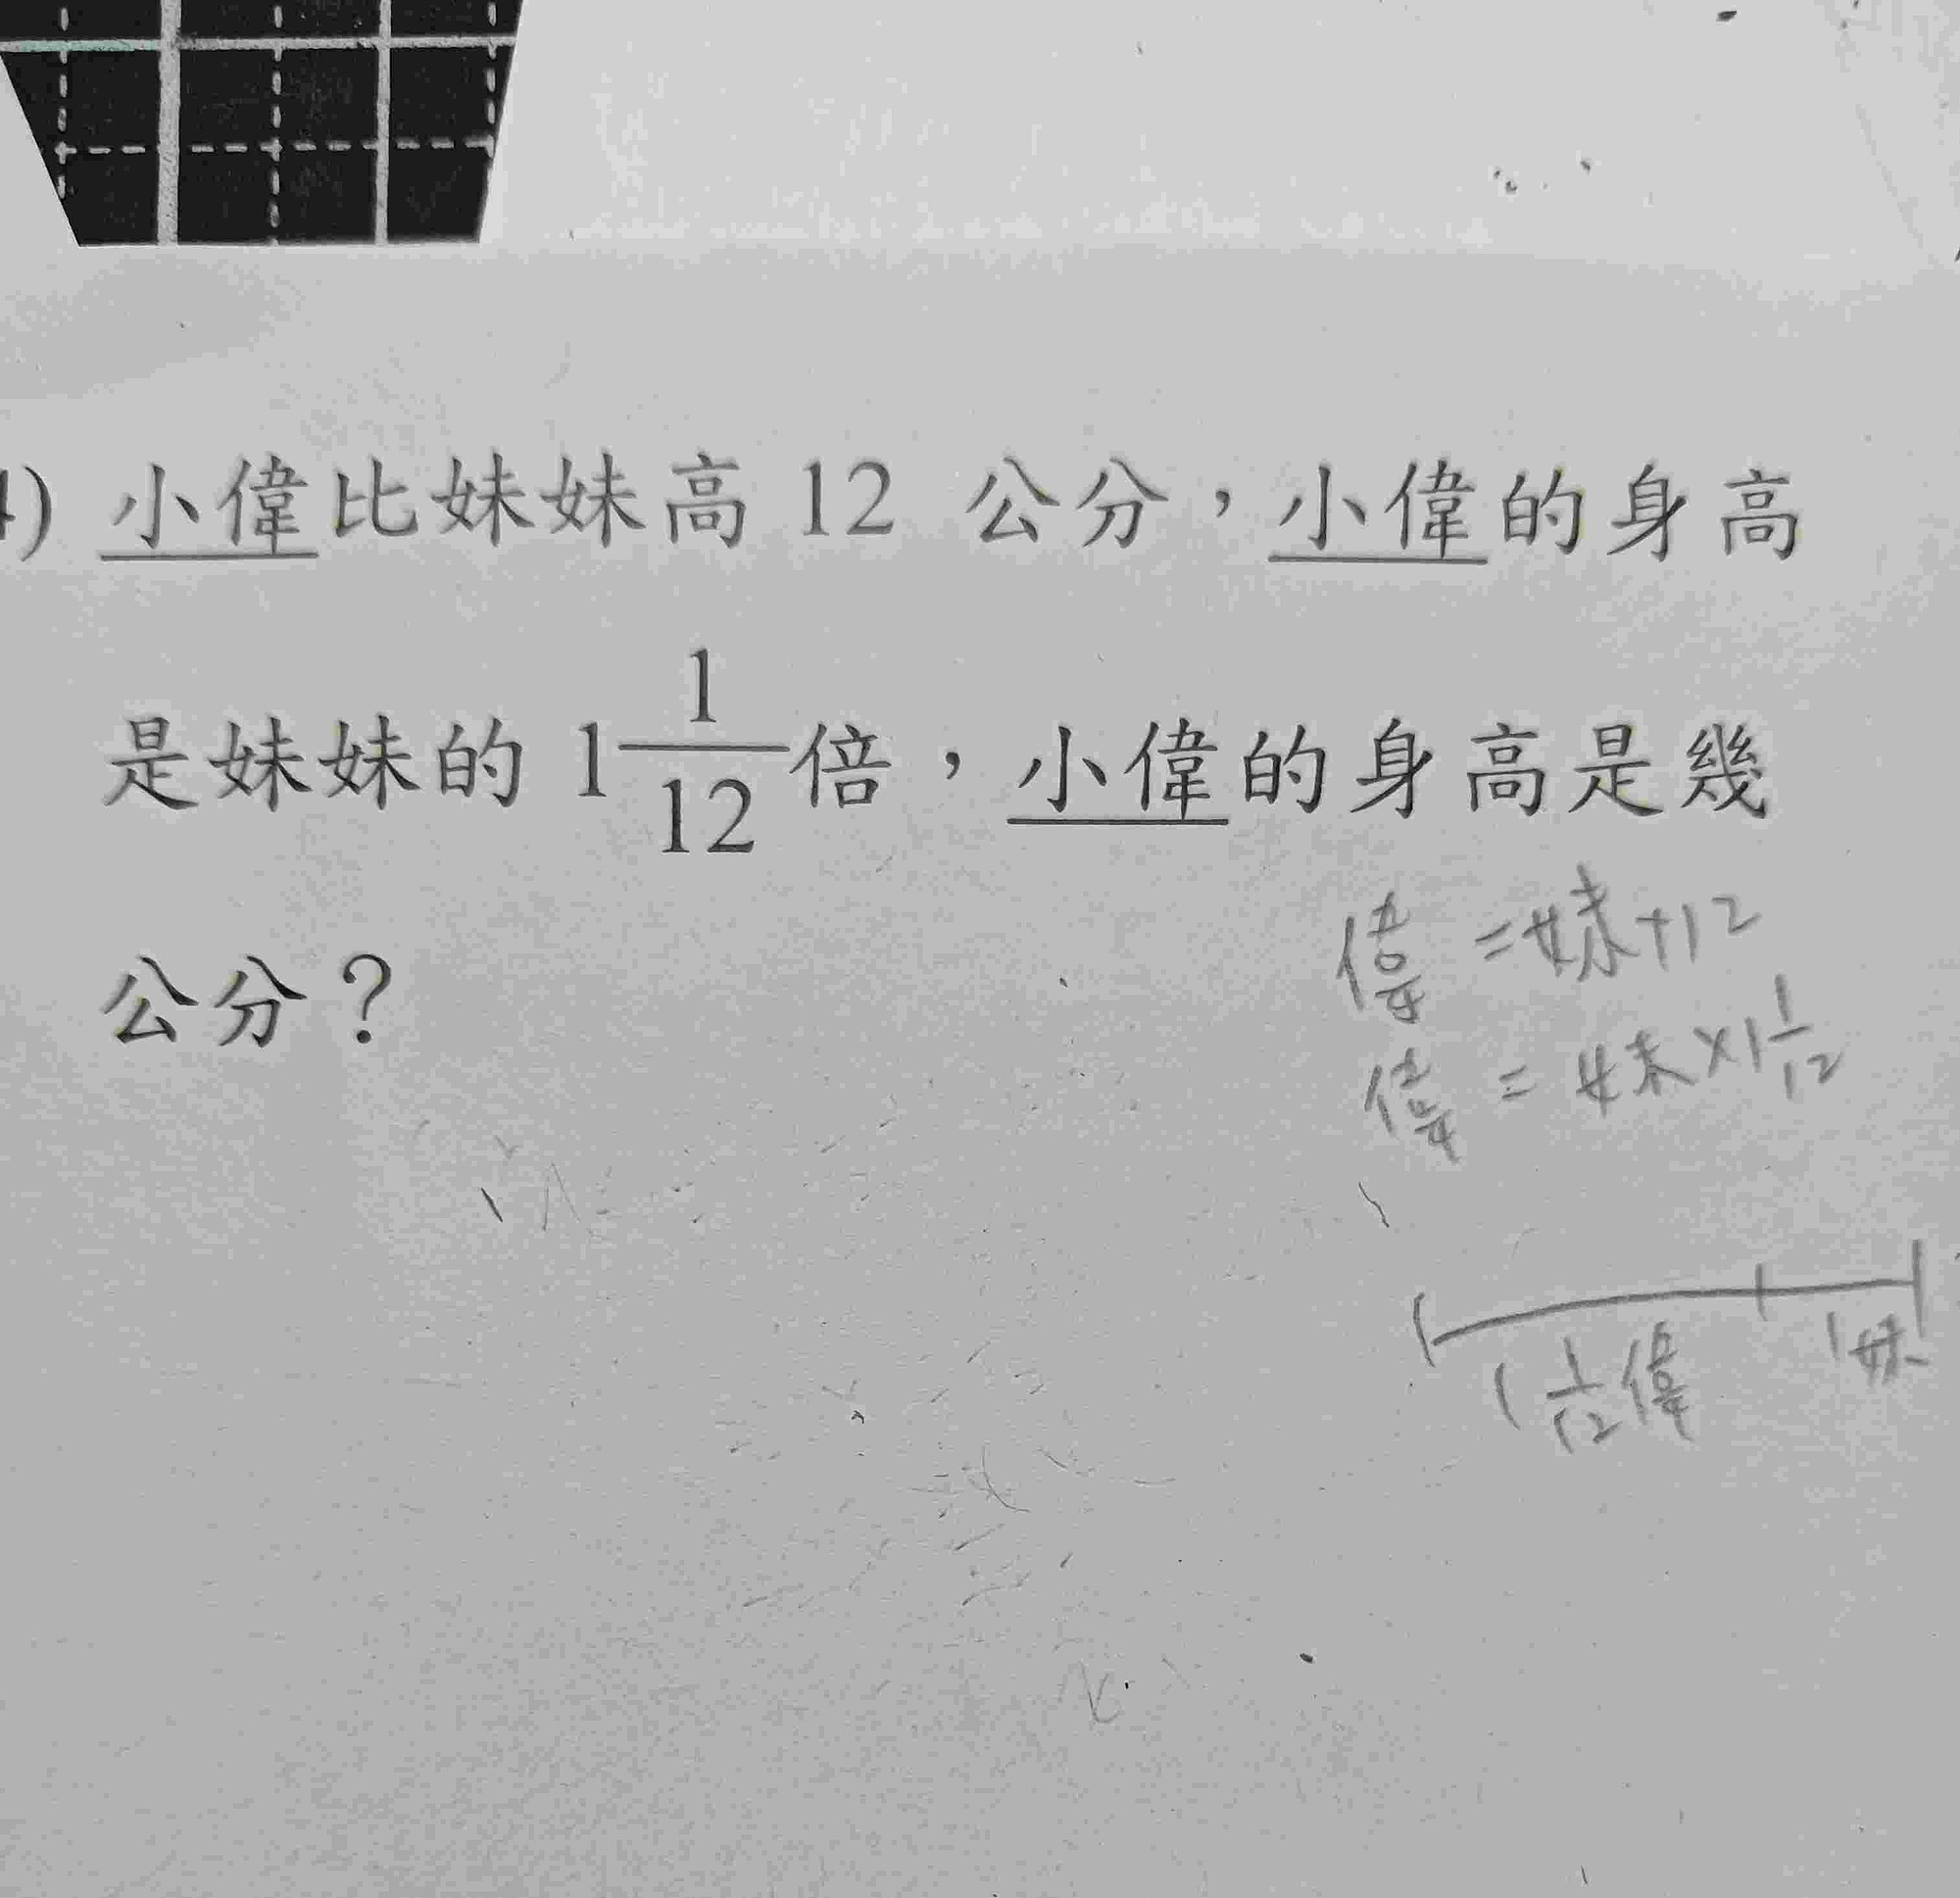 4) 小偉比妹妹高 12 公分，小偉的身高
是妹妹的 1 1/12 倍，小偉的身高是幾
公分？
偉=妹+12
偉=妹×1 1/12
1 1/12 偉 1妹